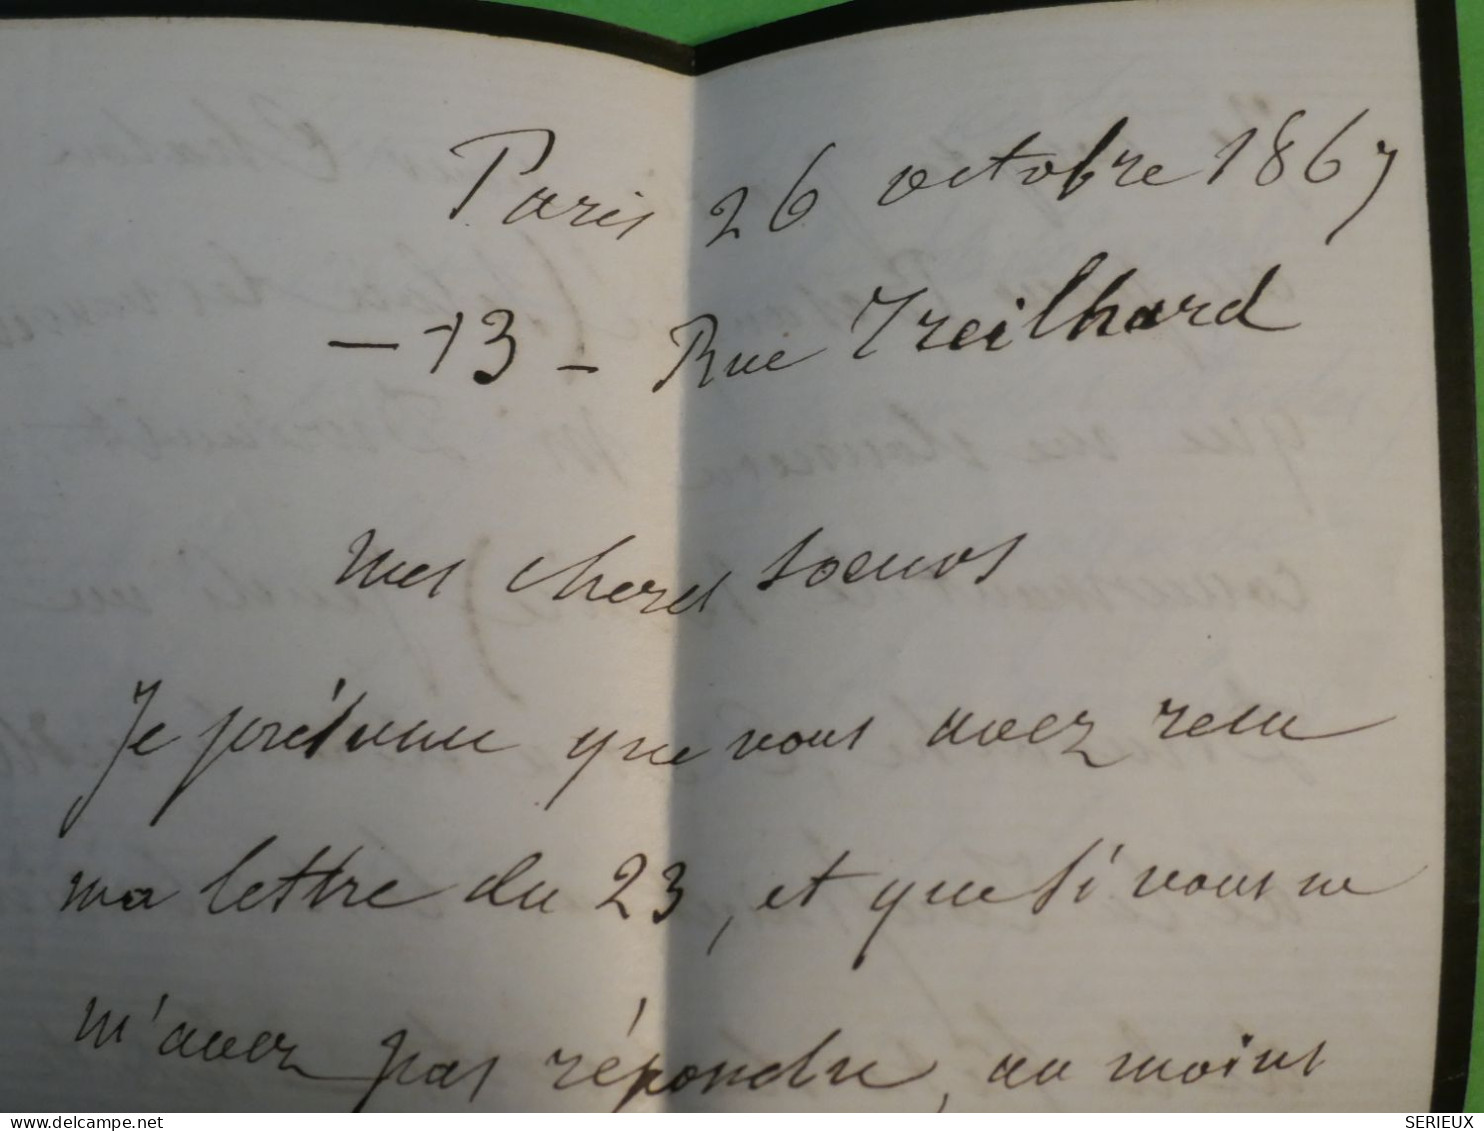 Paris 26 octobre 1867
- 13 - Rue Treilhard
mes cheres soeurs
Je présume que vous avez recu
ma lettre du 23, et que si vous ne
m'avez pas répondre, au moins
delcampe.net
SERIEUX